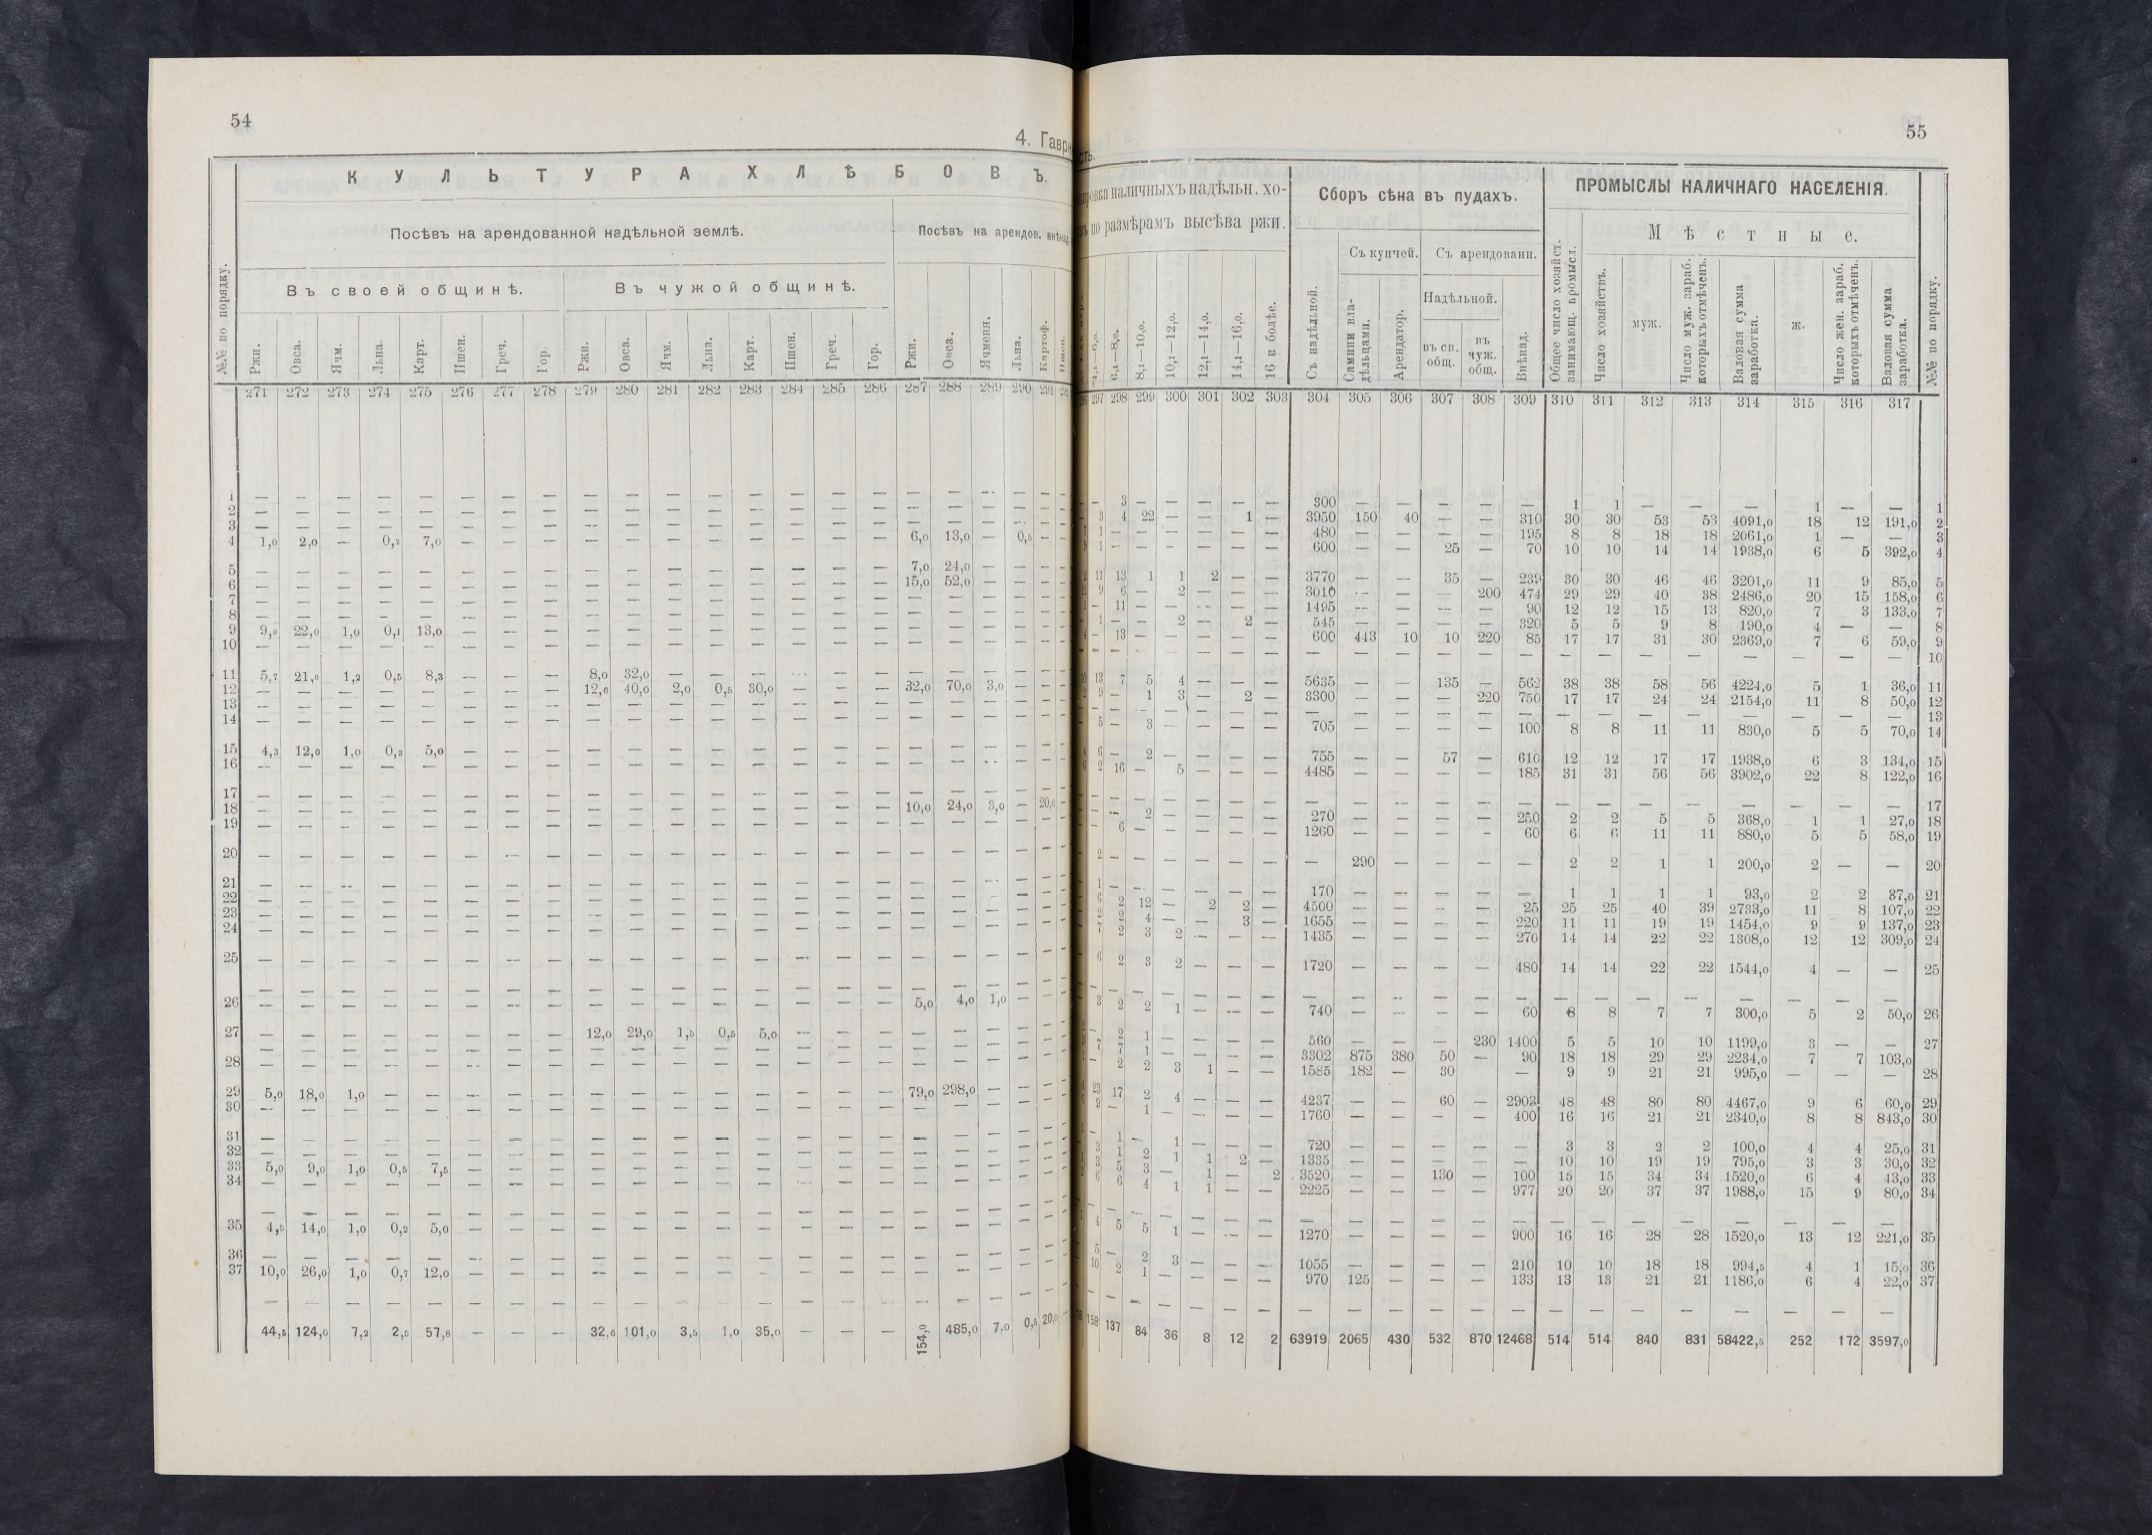 54
4. Гаври
КУЛЬТУРА ХЛѢБОВЪ.
Посѣвъ на арендованной надѣльной землѣ.
Посѣвъ на арендов. внѣнад.
Въ своей общинѣ.
Въ чужой общинѣ.
№№ по порядку. Ржи. Овса. Ячм. Льна. Карт. Пшен. Греч. Гор. Ржи. Овса. Ячм. Льна. Карт. Пшен. Греч. Гор. Ржи. Овса. Ячменя. Льна. Картоф.
271 272 273 274 275 276 277 278 279 280 281 282 283 284 285 286 287 288 289 290 291
1 — — — — — — — — — — — — — — — — — — — — —
2 — — — — — — — — — — — — — — — — — — — — —
3 — — — — — — — — — — — — — — — — — — — — —
4 1,0 2,0 — 0,2 7,0 — — — — — — — — — — — 6,0 13,0 — 0,5 —
5 — — — — — — — — — — — — — — — — 7,0 24,0 — — —
6 — — — — — — — — — — — — — — — — 15,0 52,0 — — —
7 — — — — — — — — — — — — — — — — — — — — —
8 — — — — — — — — — — — — — — — — — — — — —
9 9,0 22,0 1,0 0,1 13,0 — — — — — — — — — — — — — — — —
10 — — — — — — — — — — — — — — — — — — — — —
11 5,7 21,0 1,2 0,5 8,3 — — — 8,0 32,0 — — — — — — — — — — —
12 — — — — — — — — 12,6 40,0 2,0 0,5 30,0 — — — 32,0 70,0 3,0 — —
13 — — — — — — — — — — — — — — — — — — — — —
14 — — — — — — — — — — — — — — — — — — — — —
15 4,3 12,0 1,0 0,3 5,0 — — — — — — — — — — — — — — — —
16 — — — — — — — — — — — — — — — — — — — — —
17 — — — — — — — — — — — — — — — — — — — — —
18 — — — — — — — — — — — — — — — — 10,0 24,0 3,0 — 20,0
19 — — — — — — — — — — — — — — — — — — — — —
20 — — — — — — — — — — — — — — — — — — — — —
21 — — — — — — — — — — — — — — — — — — — — —
22 — — — — — — — — — — — — — — — — — — — — —
23 — — — — — — — — — — — — — — — — — — — — —
24 — — — — — — — — — — — — — — — — — — — — —
25 — — — — — — — — — — — — — — — — — — — — —
— — — — — — — — — — — — — — — — — — — — —
26 — — — — — — — — — — — — — — — — 5,0 4,0 1,0 — —
27 — — — — — — — — 12,0 29,0 1,5 0,5 5,0 — — — — — — — —
— — — — — — — — — — — — — — — — — — — — —
28 — — — — — — — — — — — — — — — — — — — — —
29 5,0 18,0 1,0 — — — — — — — — — — — — — 79,0 298,0 — — —
30 — — — — — — — — — — — — — — — — — — — — —
31 — — — — — — — — — — — — — — — — — — — — —
32 — — — — — — — — — — — — — — — — — — — — —
33 5,0 9,0 1,0 0,5 7,5 — — — — — — — — — — — — — — — —
34 — — — — — — — — — — — — — — — — — — — — —
— — — — — — — — — — — — — — — — — — — — —
35 4,5 14,0 1,0 0,2 5,0 — — — — — — — — — — — — — — — —
36 — — — — — — — — — — — — — — — — — — — — —
37 10,0 26,0 1,0 0,7 12,0 — — — — — — — — — — — — — — — —
— — — — — — — — — — — — — — — — — — — — —
44,5 124,0 7,2 2,5 57,8 — — — 32,6 101,0 3,5 1,0 35,0 — — — 154,0 485,0 7,0 0,5 20,0
55
сть.
ровка наличныхъ надѣльн. хо-
по размѣрамъ высѣва ржи.
Сборъ сѣна въ пудахъ.
ПРОМЫСЛЫ НАЛИЧНАГО НАСЕЛЕНІЯ.
Мѣстные.
Съ купчей. Съ арендованн.
Надѣльной.
6,1—8,0. 8,1—10,0. 10,1—12,0. 12,1—14,0. 14,1—16,0. 16 и болѣе. Съ надѣльной. Самими вла-дѣльцами. Арендатор. въ св. общ. въ чуж. общ. Внѣнад. Общее число хозяйст. занимающ. промысл. Число хозяйствъ. муж. Число муж. зараб. которыхъ отмѣченъ. Валовая сумма заработка. ж. Число жен. зараб. которыхъ отмѣченъ. Валовая сумма заработка. №№ по порядку.
297 298 299 300 301 302 303 304 305 306 307 308 309 310 311 312 313 314 315 316 317
— 3 — — — — — 300 — — — — — 1 1 — — — 1 — — 1
3 4 22 — — 1 — 3950 150 40 — — 310 30 30 53 53 4091,0 18 12 191,0 2
1 — — — — — — 480 — — — — 195 8 8 18 18 2061,0 1 — — 3
1 — — — — — — 600 — — 25 — 70 10 10 14 14 1938,0 6 5 392,0 4
11 13 1 1 2 — — 3770 — — 35 — 239 30 30 46 46 3201,0 11 9 85,0 5
9 6 — 2 — — — 3010 — — — 200 474 29 29 40 38 2486,0 20 15 158,0 6
— 11 — — — — — 1495 — — — — 90 12 12 15 13 820,0 7 3 133,0 7
1 — — 2 — 2 — 545 — — — — 320 5 5 9 8 190,0 4 — — 8
— 13 — — — — — 600 443 10 10 220 85 17 17 31 30 2369,0 7 6 59,0 9
— — — — — — — — — — — — — — — — — — — — — 10
13 7 5 4 — — — 5635 — — 135 — 562 38 38 58 56 4224,0 5 1 36,0 11
9 — 1 3 — 2 — 3300 — — — 220 750 17 17 24 24 2154,0 11 8 50,0 12
— — — — — — — — — — — — — — — — — — — — — 13
5 — 3 — — — — 705 — — — — 100 8 8 11 11 830,0 5 5 70,0 14
6 — 2 — — — — 755 — — 57 — 610 12 12 17 17 1938,0 6 3 134,0 15
2 16 — 5 — — — 4485 — — — — 185 31 31 56 56 3902,0 22 8 122,0 16
— — — — — — — — — — — — — — — — — — — — — 17
— — 2 — — — — 270 — — — — 250 2 2 5 5 368,0 1 1 27,0 18
— 6 — — — — — 1260 — — — — 60 6 6 11 11 880,0 5 5 58,0 19
2 — — — — — — — 290 — — — — 2 2 1 1 200,0 2 — — 20
1 — — — — — — 170 — — — — — 1 1 1 1 93,0 2 2 37,0 21
6 2 12 — 2 2 — 4500 — — — — 25 25 25 40 39 2733,0 11 8 107,0 22
2 2 4 — — 3 — 1655 — — — — 220 11 11 19 19 1454,0 9 9 137,0 23
7 2 3 2 — — — 1435 — — — — 270 14 14 22 22 1308,0 12 12 309,0 24
6 2 3 2 — — — 1720 — — — — 480 14 14 22 22 1544,0 4 — — 25
— — — — — — — — — — — — — — — — — — — — —
3 2 2 1 — — — 740 — — — — 60 8 8 7 7 300,0 5 2 50,0 26
— 2 1 — — — — 560 — — — 230 1400 5 5 10 10 1199,0 3 — — 27
7 7 1 — — — — 3302 875 380 50 — 90 18 18 29 29 2234,0 7 7 103,0
— 2 2 3 1 — — 1585 182 — 30 — — 9 9 21 21 995,0 — — — 28
23 17 2 4 — — — 4237 — — 60 — 2903 48 48 80 80 4467,0 9 6 60,0 29
— 1 — — — — 1760 — — — — 400 16 16 21 21 2340,0 8 8 843,0 30
1 — 1 — — — 720 — — — — — 3 3 2 2 100,0 4 4 25,0 31
1 2 1 1 2 — 1335 — — — — — 10 10 19 19 795,0 3 3 30,0 32
5 3 — 1 — 2 3520 — — 130 — 100 15 15 34 34 1520,0 6 4 43,0 33
6 6 4 1 1 — — 2225 — — — — 977 20 20 37 37 1988,0 15 9 80,0 34
— — — — — — — — — — — — — — — — — — — — —
4 5 5 1 — — — 1270 — — — — 900 16 16 28 28 1520,0 13 12 221,0 35
— 2 3 — — — 1055 — — — — 210 10 10 18 18 994,5 4 1 15,0 36
10 2 1 — — — — 970 125 — — — 133 13 13 21 21 1186,0 6 4 22,0 37
— — — — — — — — — — — — — — — — — — — — —
158 137 84 36 8 12 2 63919 2065 430 532 870 12468 514 514 840 831 58422,5 252 172 3597,0